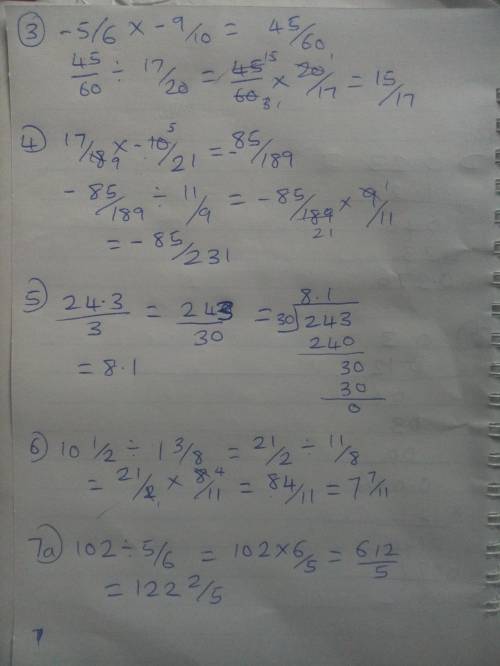 3) -5/6 x -9/10 = 45/60
45/60 ÷ 17/20 = 45 15/60 3 1 x 20 1/17 = 15/17
4) 17/18 9 x -10 5/21 = -85/189
-85/189 ÷ 11/9 = -85/189 21 x 9 1/11
= -85/231
5) 24.3/3 = 243/30 = 30)243 8.1
= 8.1
240
30
30
0
6) 10 1/2 ÷ 1 3/8 = 21/2 ÷ 11/8
= 21/2 1 x 8 4/11 = 84/11 = 7 7/11
7a) 102 ÷ 5/6 = 102 x 6/5 = 612/5
= 122 2/5